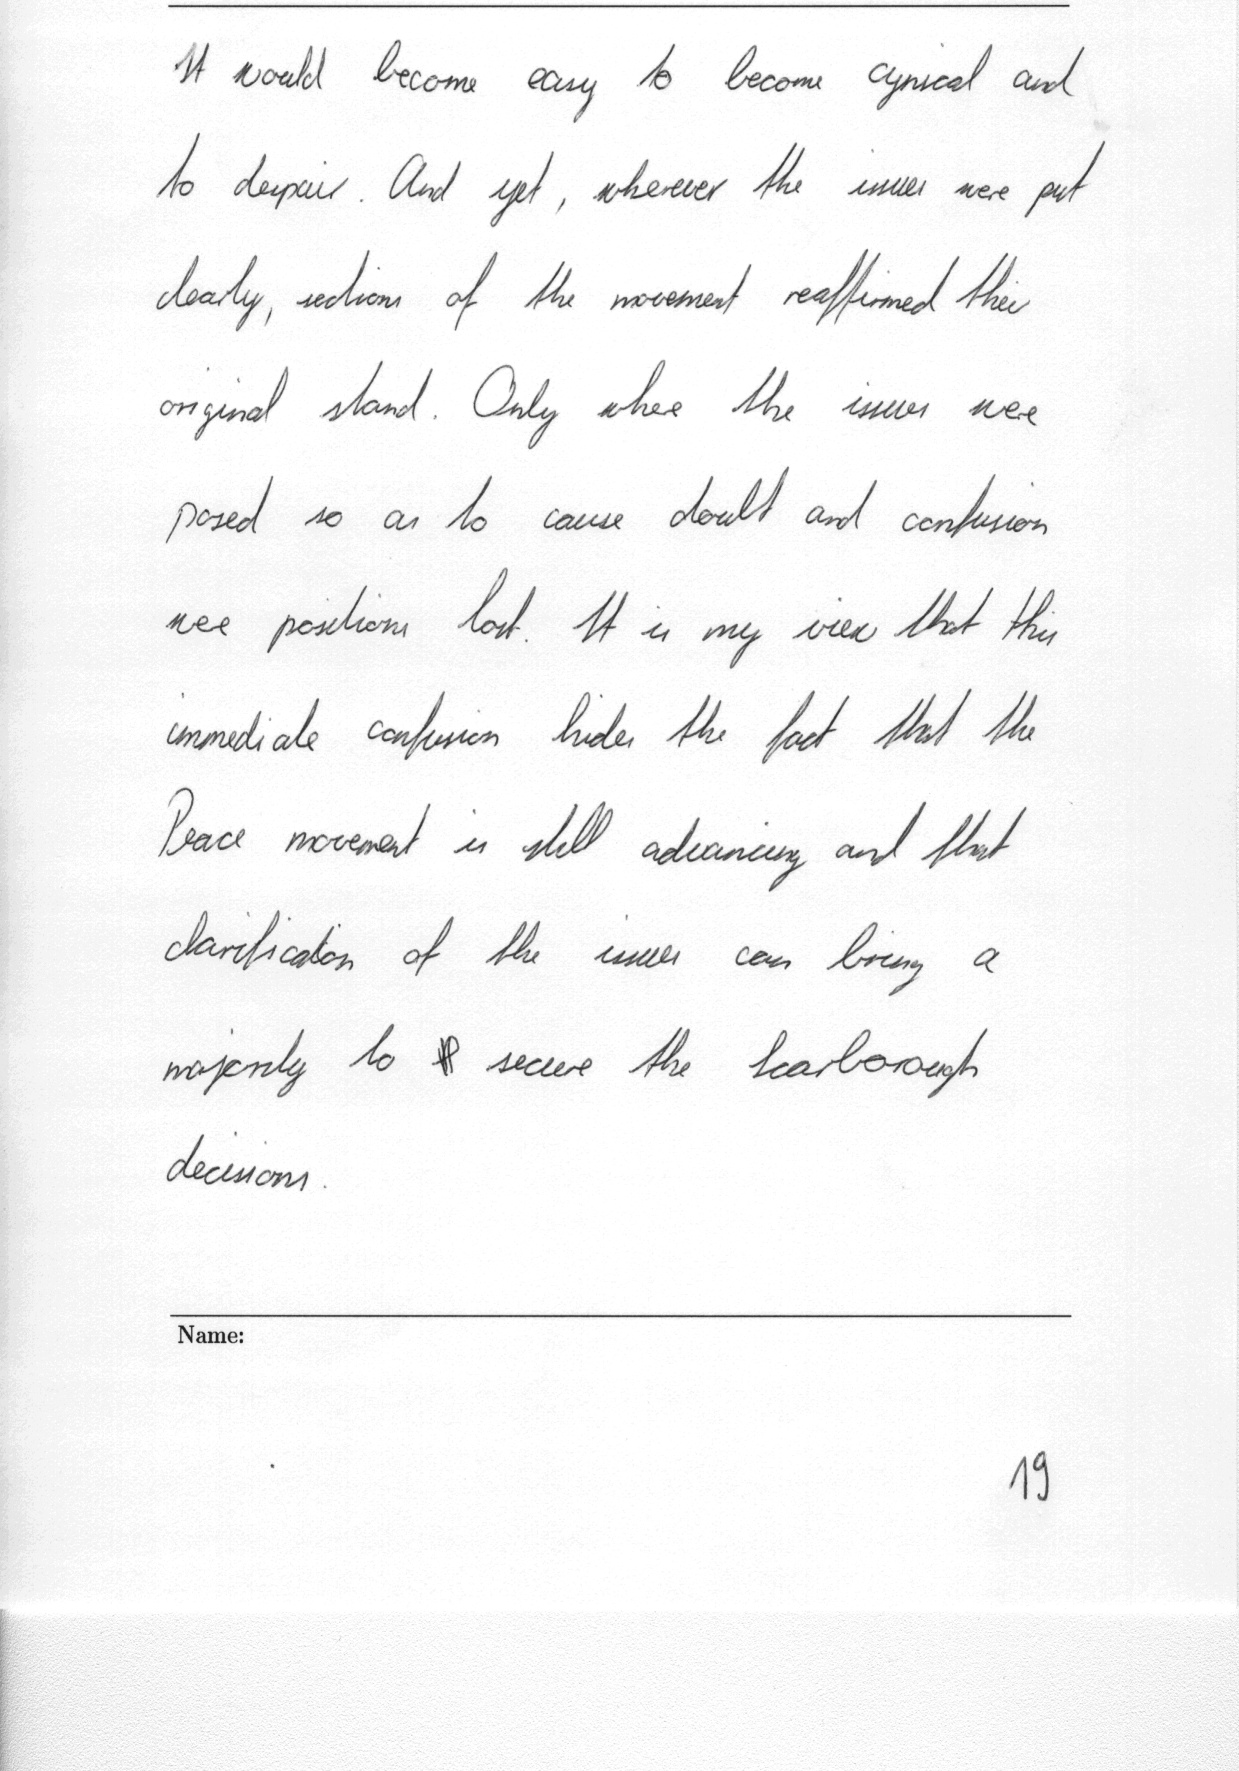 It would become easy to become cynical and
to despair. And yet, wherever the issues were put
clearly, sections of the movement reaffirmed their
original stand. Only where the issues were
posed so as to cause doubt and confusion
were positions lost. It is my view that this
immediate confusion hides the fact that the
Peace movement is still advancing and that
clarification of the issues can bring a
majority to secure the Scarborough
decisions.
Name:
19